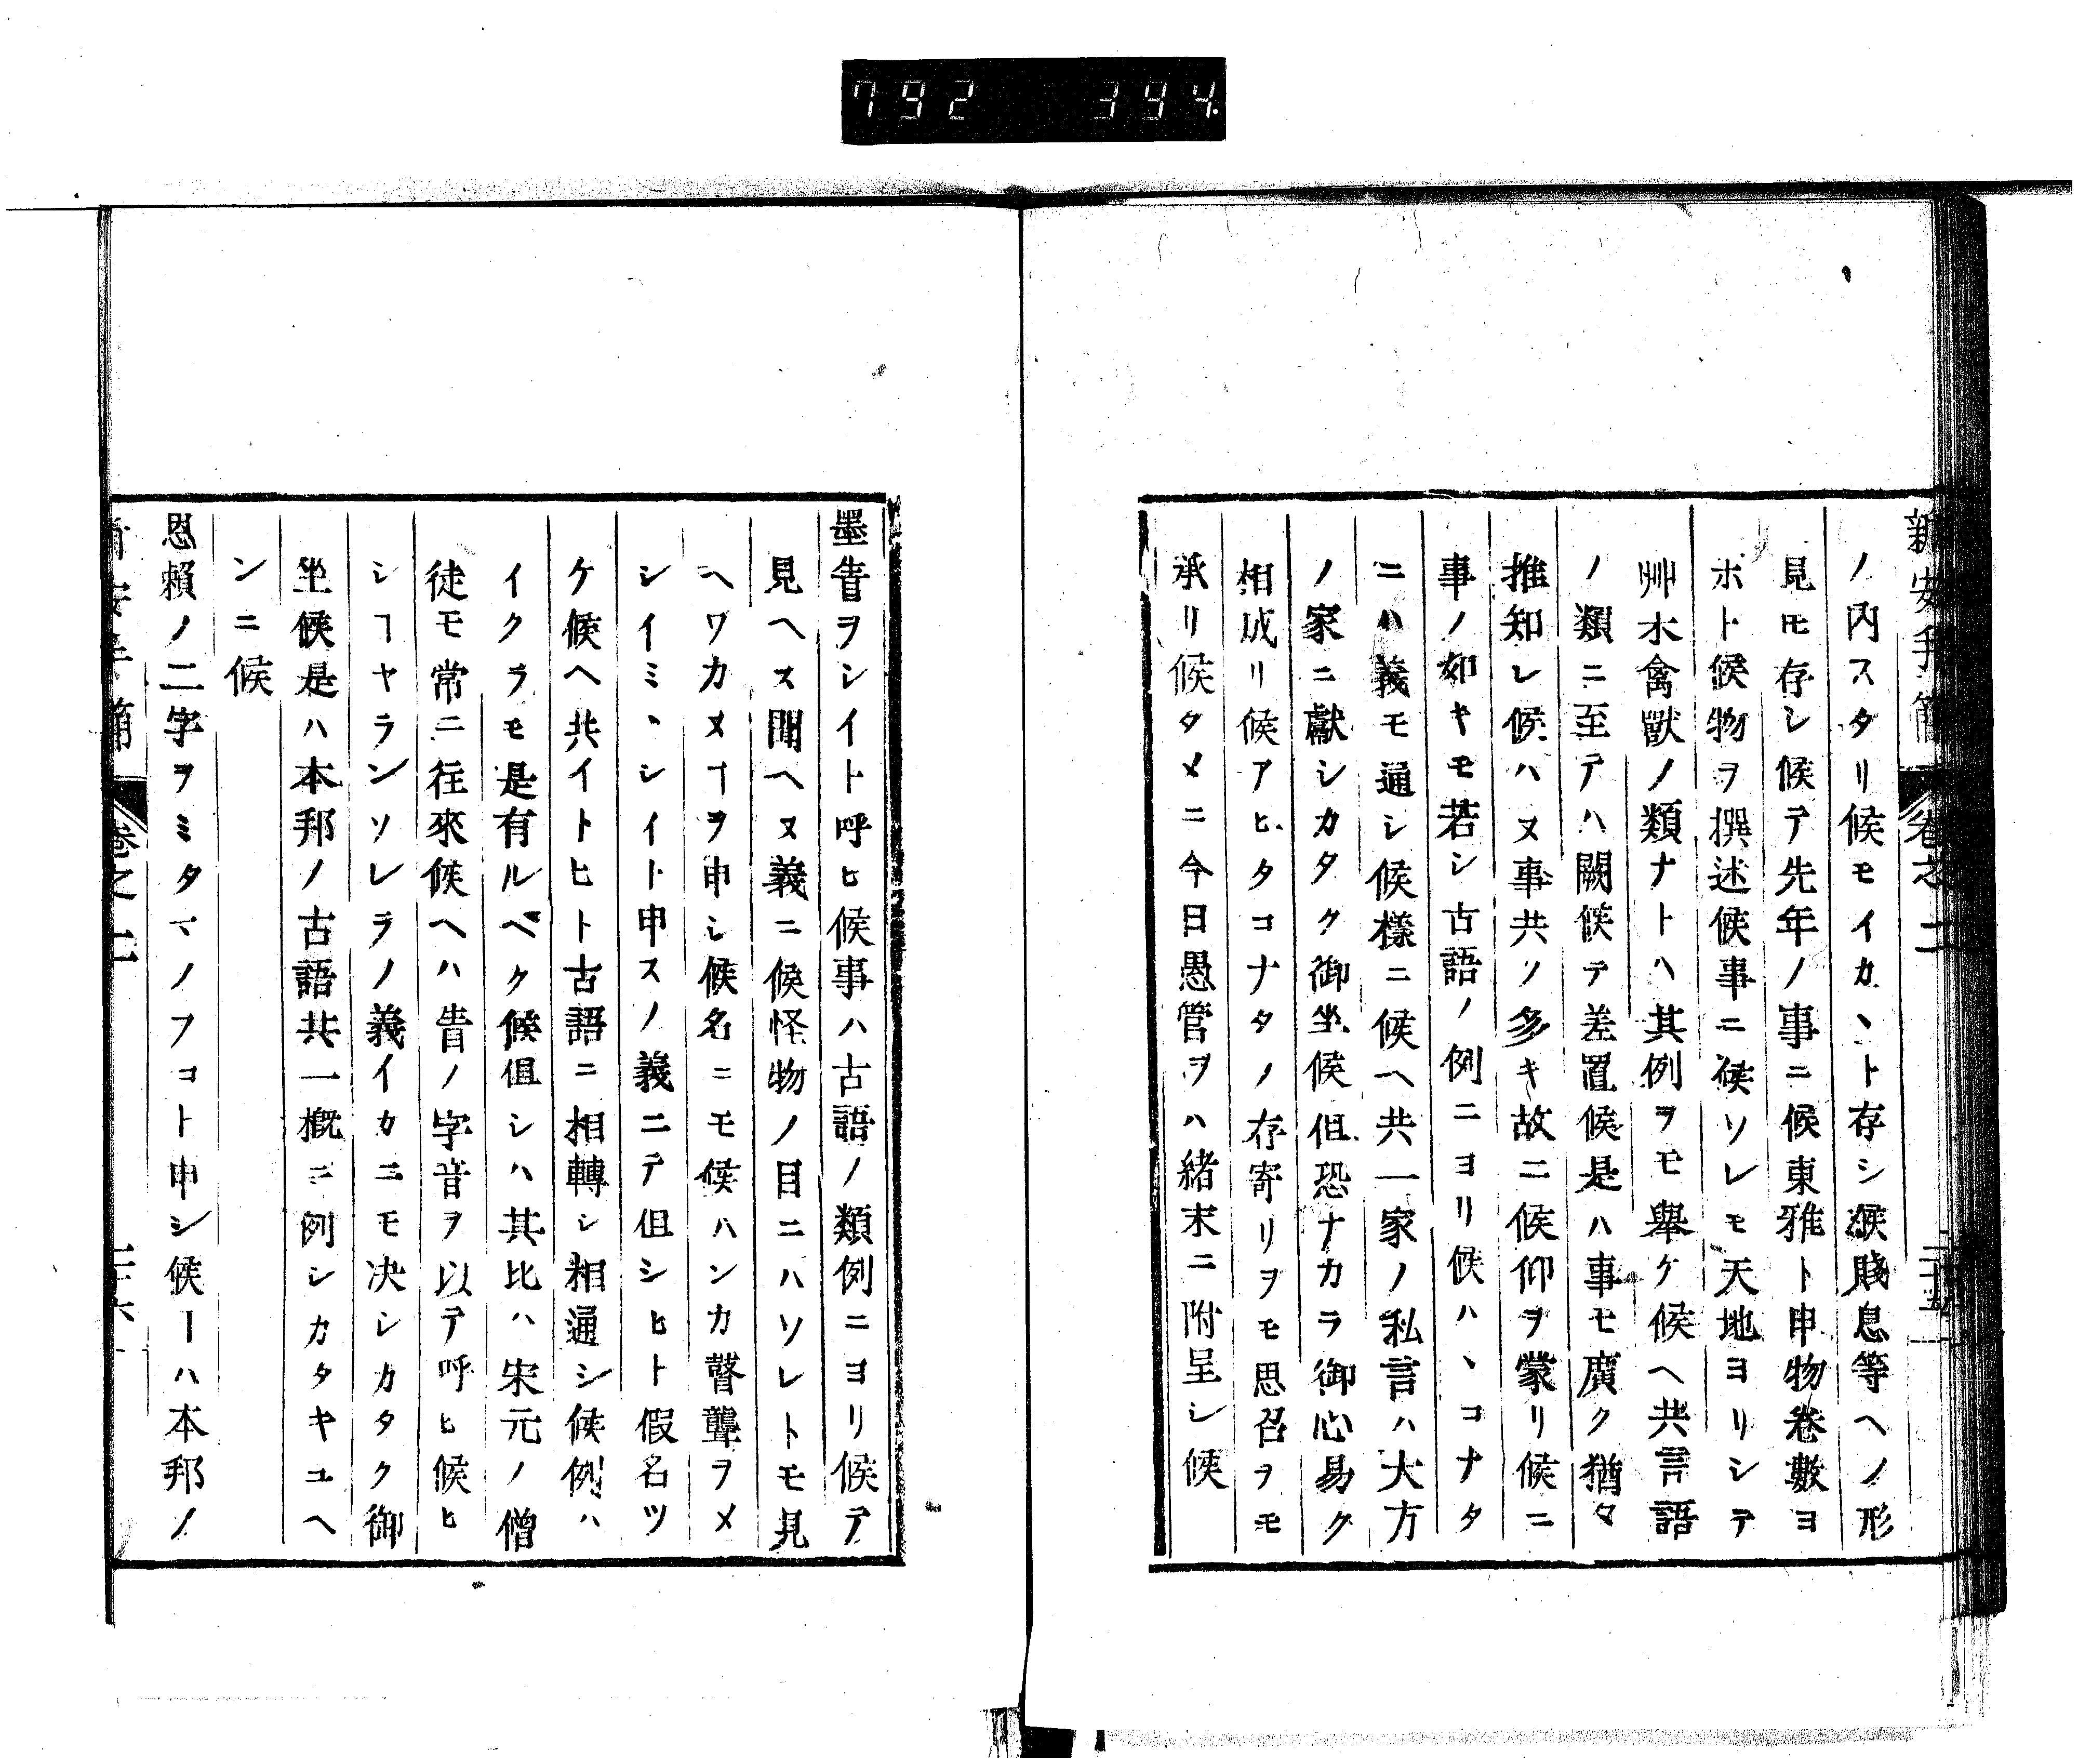 792 394
新安手簡 卷之二 二十五
ノ內スタリ候モイカヽト存シ候賤息等ヘノ形
見モ存シ候テ先年ノ事ニ候東雅ト申物卷數ヨ
ホト候物ヲ撰述候事ニ候ソレモ天地ヨリシテ
艸木禽獸ノ類ナトハ其例ヲモ舉ケ候ヘ共言語
ノ類ニ至テハ闕候テ差置候是ハ事モ廣ク猶タ
推知レ候ハヌ事共ノ多キ故ニ候仰ヲ蒙リ候ニ
事ノ如キモ若シ古語ノ例ニヨリ候ハヽコナタ
ニハ義モ通シ候樣ニ候ヘ共一家ノ私言ハ大方
ノ家ニ獻シカタク御坐候但恐ナカラ御心易ク
相成リ候アヒタコナタノ存寄リヲモ思召ヲモ
承リ候タメニ今日愚管ヲハ緒末ニ附呈シ候
墨眚ヲシイト呼ヒ候事ハ古語ノ類例ニヨリ候テ
見ヘス聞ヘヌ義ニ候怪物ノ目ニハソレトモ見
ヘワカヌヿヲ申シ候名ニモ候ハンカ瞽聾ヲメ
シイミヽシイト申スノ義ニテ但シヒト假名ツ
ケ候ヘ共イトヒト古語ニ相轉シ相通シ候例ハ
イクラモ是有ルベク候但シハ其比ハ宋元ノ僧
徒モ常ニ往來候ヘハ眚ノ字音ヲ以テ呼ヒ候ヒ
シヿヤランソレラノ義イカニモ決シカタク御
坐候是ハ本邦ノ古語共一概ニ例シカタキユヘ
ンニ候
恩賴ノ二字ヲミタマノフコト申シ候ーハ本邦ノ
卷之二